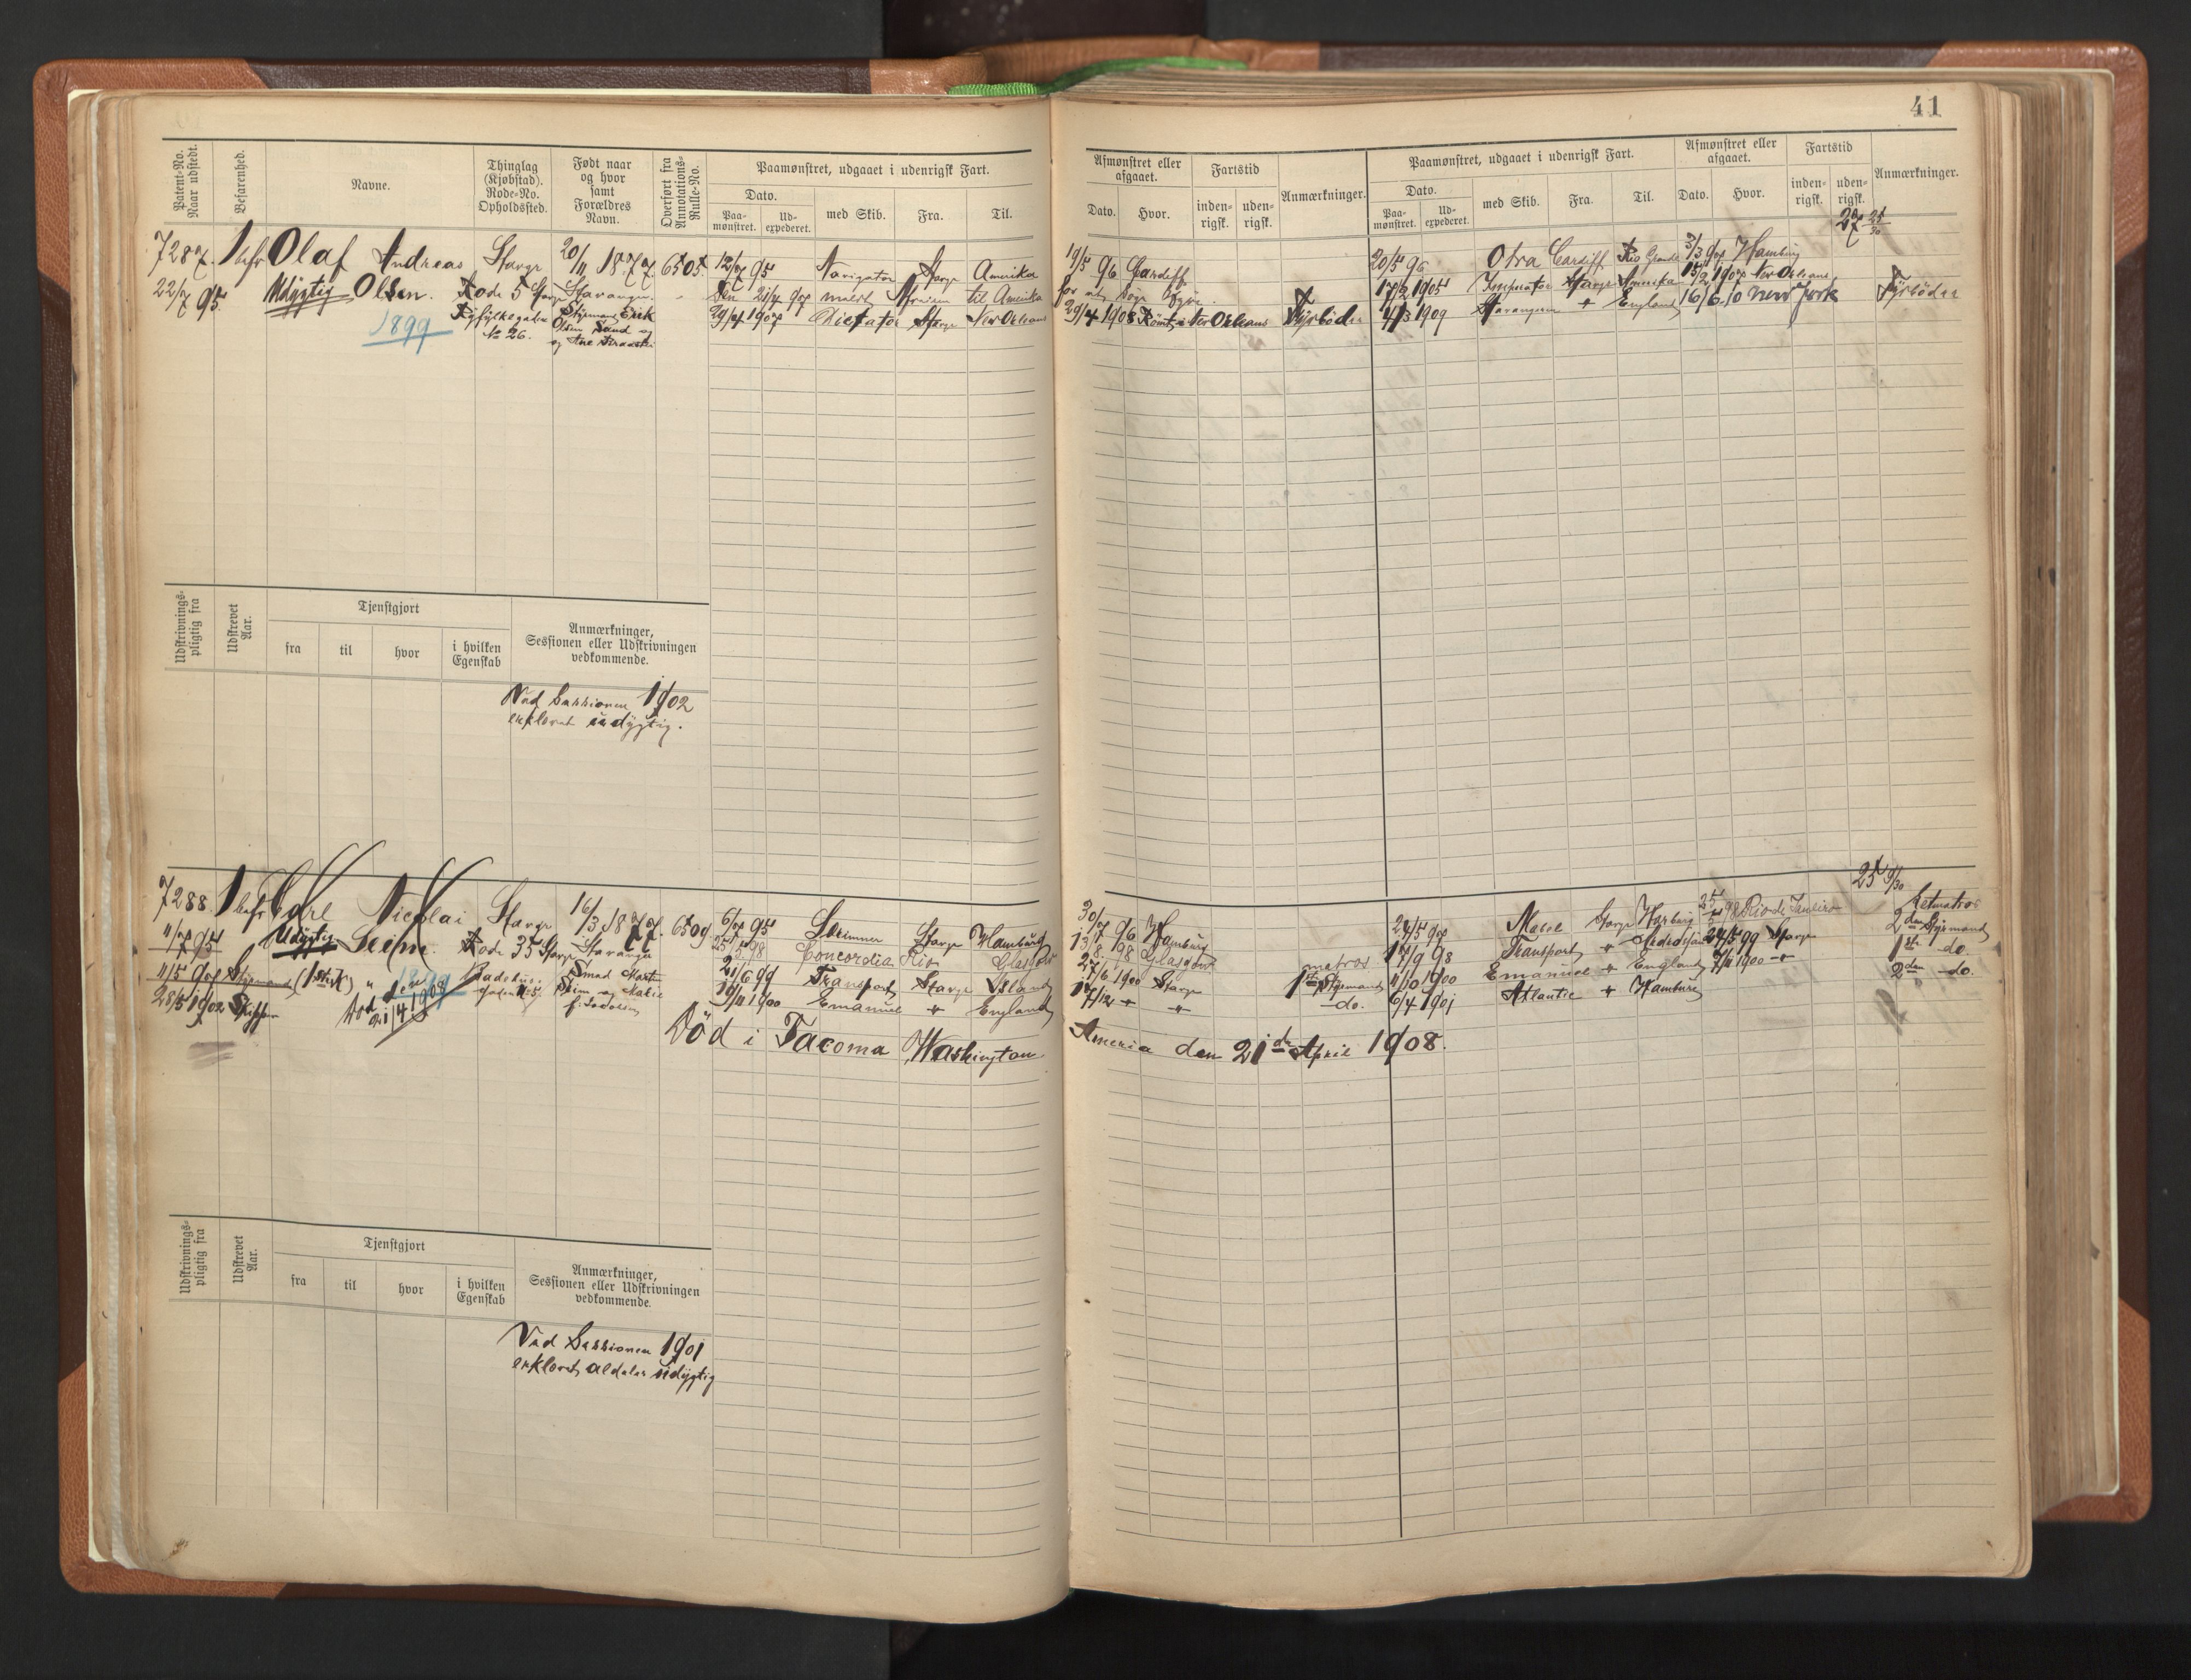 41
Patent-No. Naar udstedt.
Befarenhed.
Navne.
Thinglag (Kjøbstad). Rode-No. Opholdssted.
Født naar og hvor samt Forældres Navn.
Overført fra Annotations-Rulle-No.
Paamønstret, udgaaet i udenrigsk Fart.
Dato.
Paa-mønstret.
Ud-expederet.
med Skib.
Fra.
Til.
Afmønstret eller afgaaet.
Dato.
Hvor.
Fartstid
inden-rigsk.
uden-rigsk.
Anmærkninger.
Paamønstret, udgaaet i udenrigsk Fart.
Dato.
Paa-mønstret.
Ud-expederet.
med Skib.
Fra.
Til.
Afmønstret eller afgaaet.
Dato.
Hvor.
Fartstid
inden-rigsk.
uden-rigsk.
Anmærkninger.
27 25/30
7287. 1 bef Olaf Andreas Stavgr 20/11 1877. 6505. 12/7 95 Navigator Stavgr Amerika
22/7 95. Udygtig Olsen. Rode 5 Stavgr Stavanger
1899 Ryfylkegaden No 26. Styrmand Erik Olsen Sand og
29/4 1907 Dictator Stavgr New Orleans
19/5 96 Cardiff 20/5 96 Otra Cardiff Rio Grande 3/3 97 Hamburg
17/2 1905 Imperator Stavgr Amerika 15/2 1907 New Orleans
29/4 1908 Rømt i New Orleans Fyrbøder 4/3 1909 Stavangeren " England 16/6-10 New York Fyrbøder
Udskrivnings-pligtig fra
Udskrevet Aar.
Tjenstgjort
fra
til
hvor
i hvilken Egenskab
Anmærkninger, Sessionen eller Udskrivningen vedkommende.
Ved Sessionen 1902
erklæret udygtig.
25 9/30
7288. 1 bef Carl Nicolai Stavgr 16/3 1877. 6509 6/7 95 Skrimner Stavgr Hamburg
11/7 95 Udygtig Seim. Rode 35 Stavgr Stavanger 25/5 98 Concordia Rio Glasgow
11/5 97 Styrmand 1899 Smed Marti 21/6 99 Transport Stavgr Island
28/5 1902 Skipper Død 21/4 1908 Seim og Malie 19/11 1900 Emanuel " England
Død i Tacoma, Washington
30/7 96 Hamburg 24/5 97 Stavgr Harburg 25/5 98 Rio de Janeiro Letmatros
13/8 98 Glasgow matros 17/9 98 Transport " 24/5 99 Stavgr 2den Styrmand
27/6 1900 Stavgr 1ste Styrmand 11/10 1900 Emanuel " England 7/11 1900 " 1ste do.
17/12 " " do. 6/4 1901 Atlantic " Hamburg 2den do.
America den 21de April 1908.
Udskrivnings-pligtig fra
Udskrevet Aar.
Tjenstgjort
fra
til
hvor
i hvilken Egenskab
Anmærkninger, Sessionen eller Udskrivningen vedkommende.
Ved Sessionen 1901
erklæret aldeles udygtig